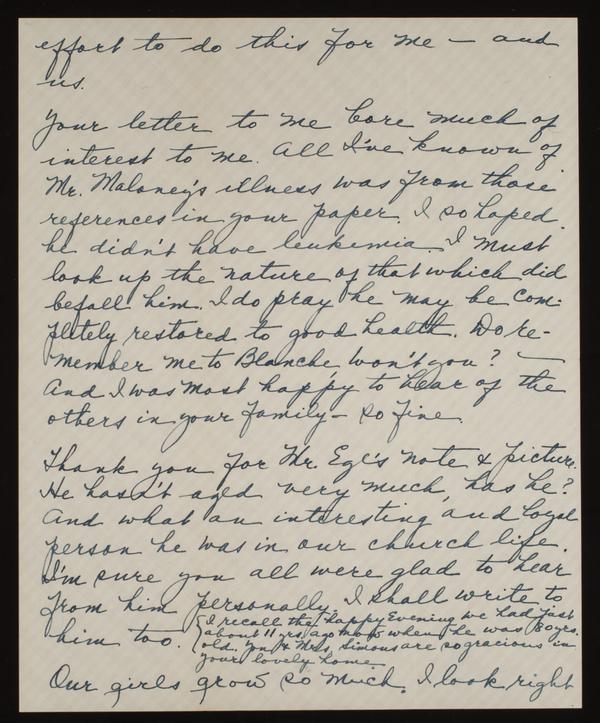 effort to do this for me — and
us.
Your letter to me bore much of
interest to me. All I've known of
Mr. Maloney's illness was from those
references in your paper. I so hoped
he didn't have leukemia. I must
look up the nature of that which did
befall him. I do pray he may be com-
pletely restored to good health. Do re-
member me to Blanche, won't you? —
And I was most happy to hear of the
others in your family — so fine.
Thank you for Mr. Ege's note & picture.
He hasn't aged very much, has he?
And what an interesting and loyal
person he was in our church life.
I'm sure you all were glad to hear
from him personally. I shall write to
him too.
I recall the happy evening we had just
about 11 yrs ago when he was 80 yrs.
old. You & Mrs. Simons are so gracious in
your lovely home.
Our girls grow so much. I look right